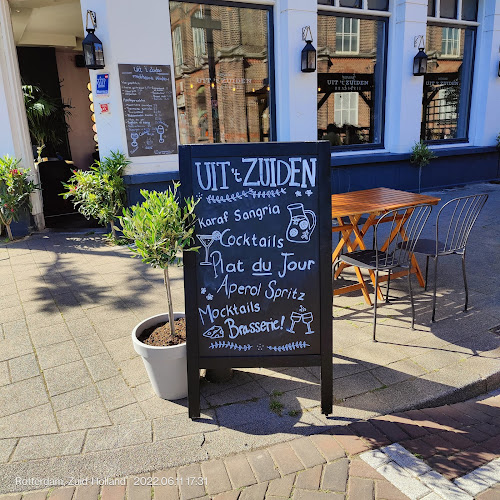 UIT 't ZUIDEN
UIT 't ZUIDEN
BRASSERIE
UIT 't ZUIDEN
Karaf Sangria
Cocktails
Plat du Jour
Aperol Spritz
Mocktails
Brasserie!
Rotterdam, Zuid-Holland 2022.06.11 17:31